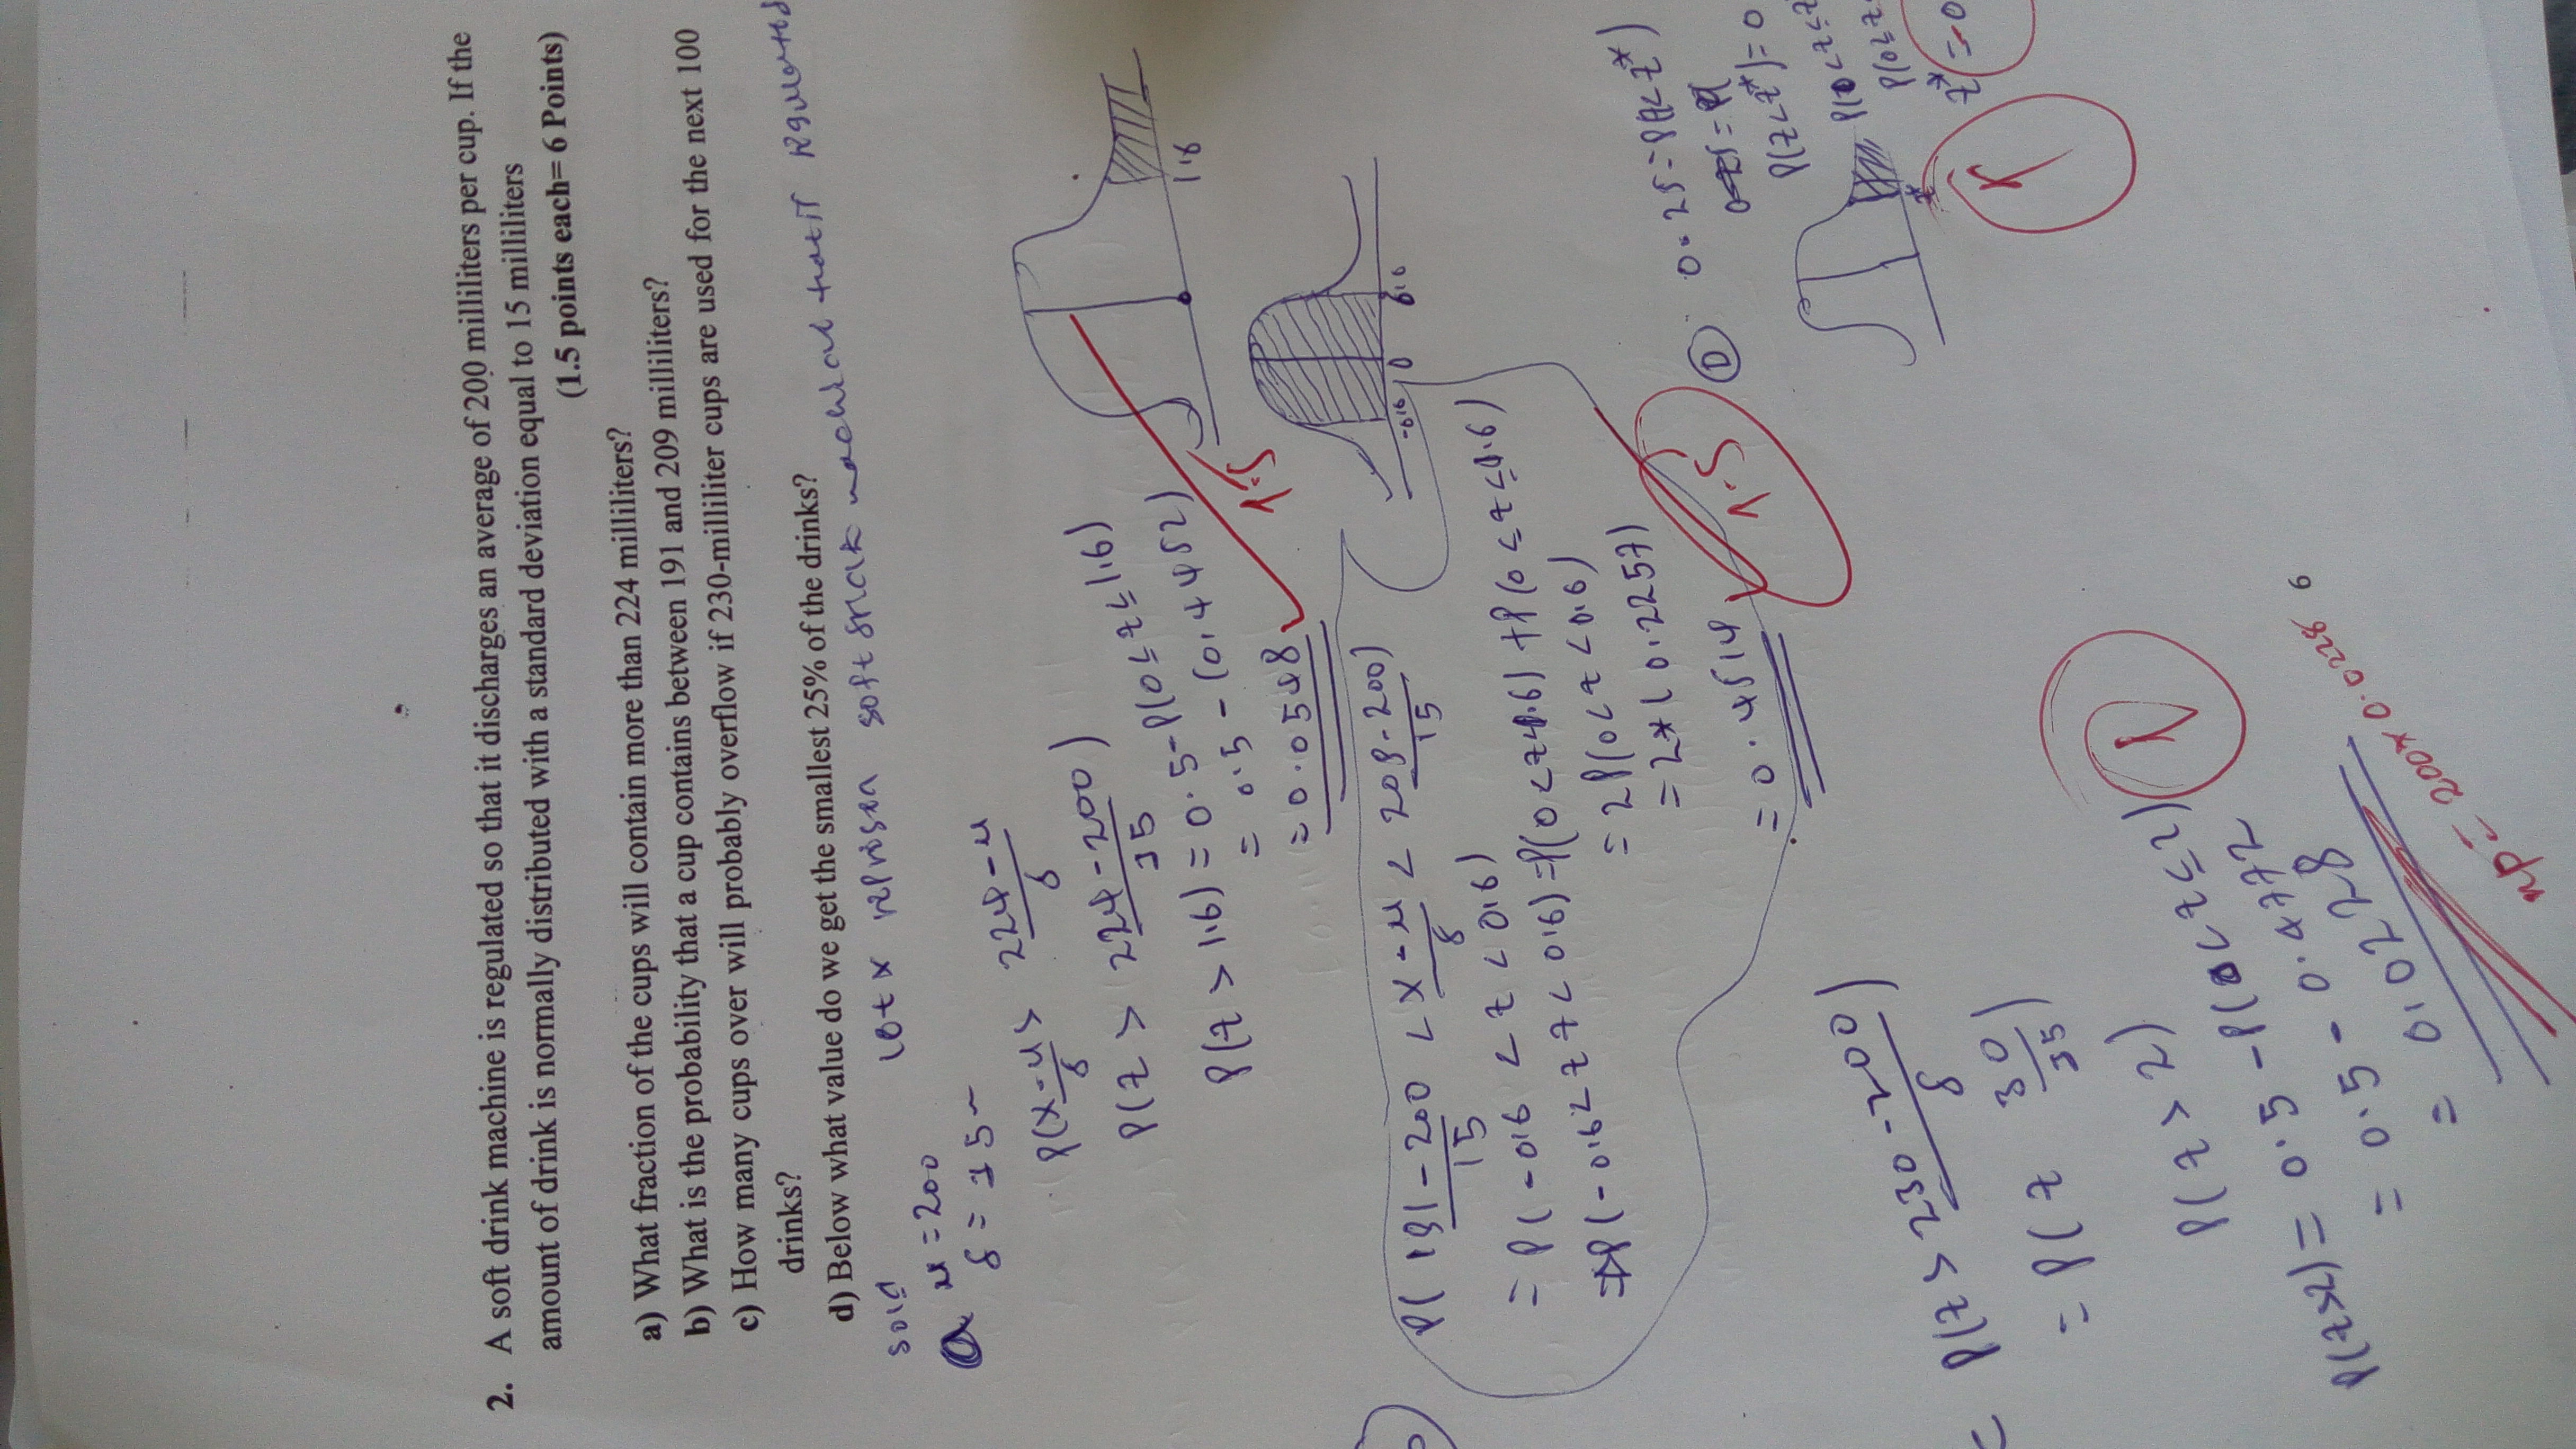 2. A soft drink machine is regulated so that it discharges an average of 200 milliliters per cup. If the
amount of drink is normally distributed with a standard deviation equal to 15 milliliters
(1.5 points each= 6 Points)
a) What fraction of the cups will contain more than 224 milliliters?
b) What is the probability that a cup contains between 191 and 209 milliliters?
c) How many cups over will probably overflow if 230-milliliter cups are used for the next 100
drinks?
d) Below what value do we get the smallest 25% of the drinks?
let x represen soft
a μ = 200
δ = 15
P(X-μ/δ > 224-μ/δ
P(Z > 224-200/15)
P(Z > 1.6) = 0.5-P(0≤z≤1.6)
= 0.5-(0.4452)
= 0.0548
1.5
1.6
P(191-200/15 < X-μ/δ < 209-200/15)
-0.6 0 0.6
= P(-0.6 < z < 0.6)
⇒P(-0.6 < z < 0.6) = P(0<z<0.6) + P(0≤z≤0.6)
= 2P(0<z<0.6)
= 2*(0.2257)
= 0.4514
1.5
D 0.25 = P(z<z*)
P(z<z*) = 0
P(0<z≤z
P(0≤z
z* = -0
z*
1
= P(z > 230-200/δ)
= P(z 30/15)
P(z > 2)
P(z>2) = 0.5 - P(0<z≤2)
1
= 0.5 - 0.4772
= 0.0228
np = 200 x 0.0228
6